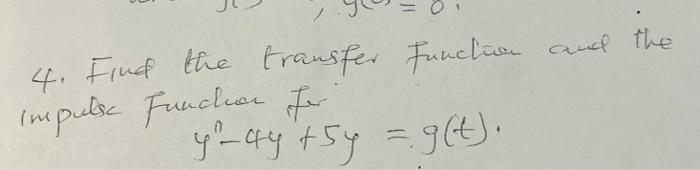 y(0) = 0.
4. Find the transfer function and the
impulse function for
y" - 4y + 5y = g(t).